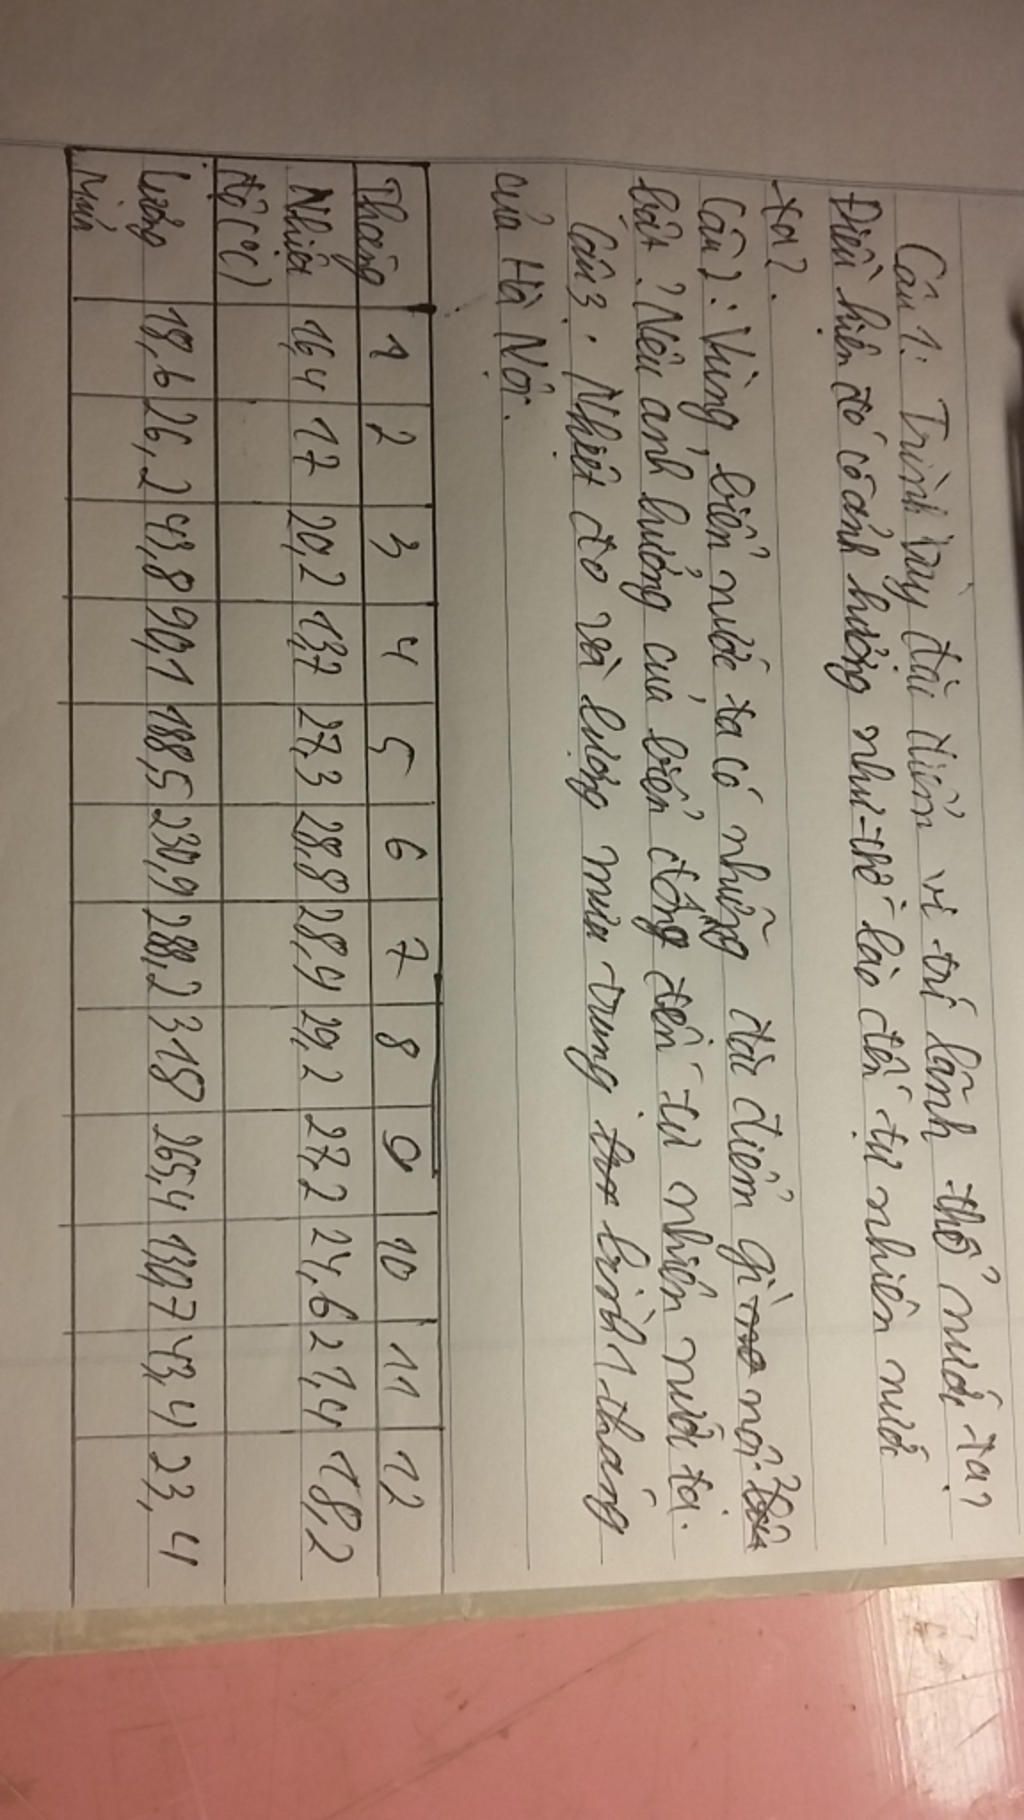 Câu 1: Trình bày đặc điểm vị trí lãnh thổ nước ta?
Điều kiện đó có ảnh hưởng như thế lào đến tự nhiên nước
ta?
Câu 2: Vùng biển nước ta có những đặc điểm gì nổi
bật? Nêu ảnh hưởng của biển đông đến tự nhiên nước ta.
Câu 3. Nhiệt đo và lượng mưa trung bình 1 tháng
của Hà Nội.
Tháng 1 2 3 4 5 6 7 8 9 10 11 12
Nhiệt độ (°C) 16,4 17 20,2 13,7 27,3 28,8 28,9 29,2 27,2 24,6 21,4 18,2
Lượng mưa 18,6 26,2 43,8 90,1 188,5 230,9 288,2 318 265,4 130,7 43,4 23,4